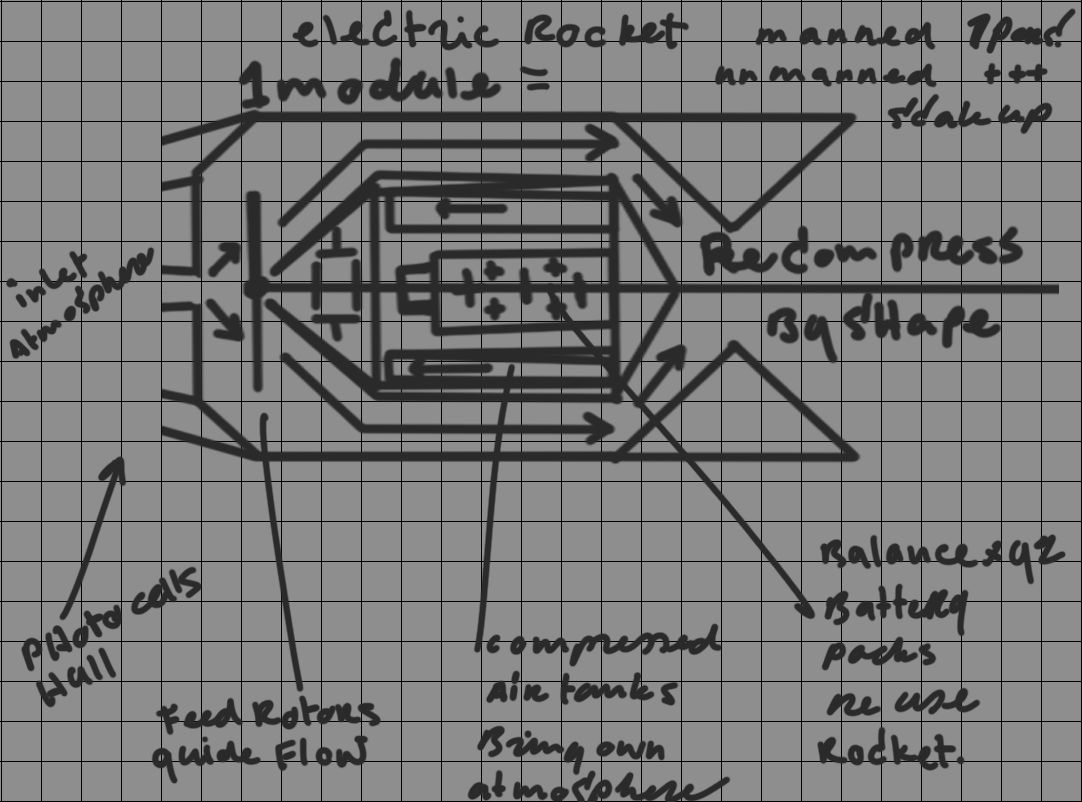 electric Rocket
1 module =
manned
unmanned +++
inlet
Atmosphere
press
By sHape
PHoto cells
Hull
Feed Rotors
guide Flow
compressed
Air tanks
Bring own
atmosphere
Balance
Battery
packs
Re use
Rocket.